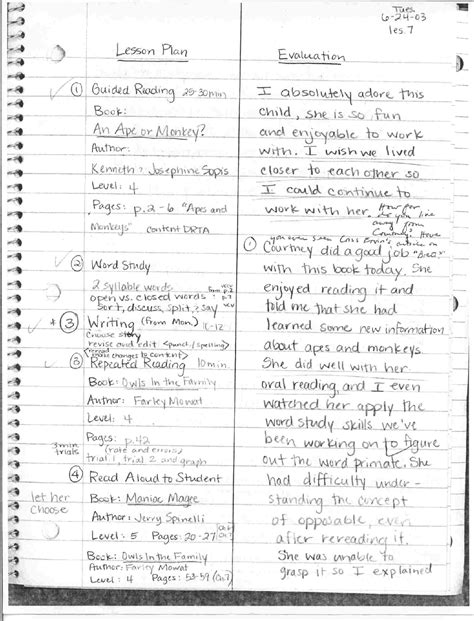 Tues.
6-24-03
les. 7
Lesson Plan
① Guided Reading 25-30min
Book:
An Ape or Monkey?
Author:
Kenneth? Josephine Sopis
Level: 4
Pages: p.2-6 "Apes and
Monkeys" content DRTA
② Word Study
2 syllable words
open vs. closed words
Sort, discuss, split, say
* ③ Writing (From Mon.)
choose story
revise and edit <punct./spelling>
③ Repeated Reading 10min.
Book: Owls In the Family
Author: Farley Mowat
Level: 4
Pages: p.42
3min trials
(rate and errors)
trial 1, trial 2 and graph
④ Read Aloud to Student
let her choose
Book: Maniac Magee
Author: Jerry Spinelli
Level: 5 Pages: 20-27
Book: Owls In the Family
Author: Farley Mowat
Level: 4 Pages: 53-59 (Ch.7)
Evaluation
I absolutely adore this
child, she is so fun
and enjoyable to work
with. I wish we lived
closer to each other so
I could continue to
work with her. How far
do you live
away from
Courtney?
① Courtney did a good job
with this book today. She
enjoyed reading it and
told me that she had
learned some new information
about apes and monkeys.
She did well with her
oral reading, and I even
watched her apply the
word study skills we've
been working on to figure
out the word primate. She
had difficulty under-
standing the concept
of opposable, even
after rereading it.
She was unable to
grasp it so I explained